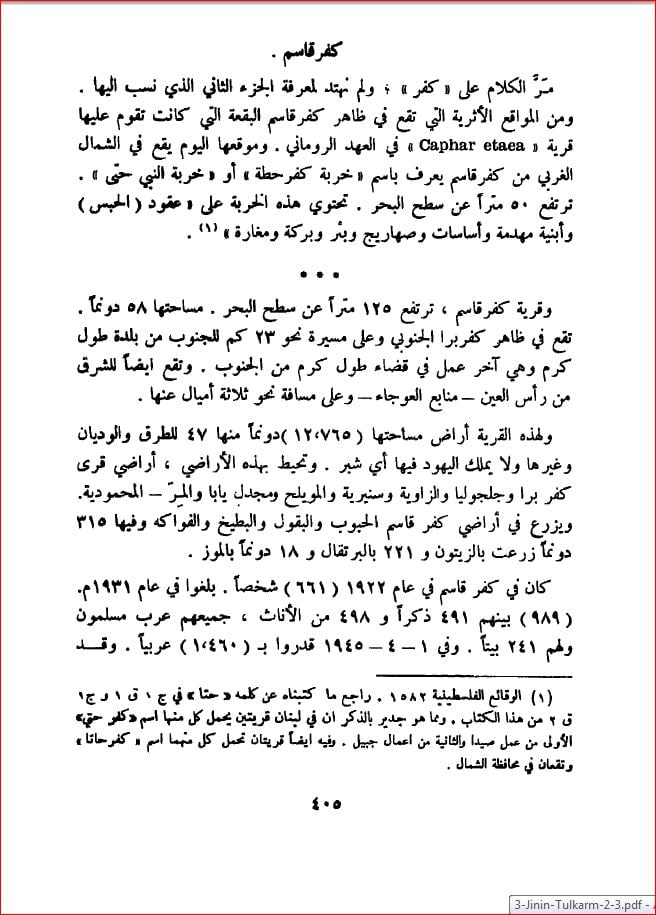 كفر قاسم .
مَرَّ الكلام على « كفر » ؛ ولم نهتد لمعرفة الجزء الثاني الذي نسب اليها .
ومن المواقع الأثرية التي تقع في ظاهر كفر قاسم البقعة التي كانت تقوم عليها
قرية « Caphar etaea » في العهد الروماني . وموقعها اليوم يقع في الشمال
الغربي من كفر قاسم يعرف باسم « خربة كفر حطة » أو « خربة النبي حتّى » .
ترتفع ٥٠ متراً عن سطح البحر . تحتوي هذه الخربة على « عقود ( الحبس )
وأبنية مهدمة وأساسات وصهاريج وبئر وبركة ومغارة » (١) .
* * *
وقرية كفر قاسم ، ترتفع ١٢٥ متراً عن سطح البحر . مساحتها ٥٨ دونماً .
تقع في ظاهر كفر برا الجنوبي وعلى مسيرة نحو ٢٣ كم للجنوب من بلدة طول
كرم وهي آخر عمل في قضاء طول كرم من الجنوب . وتقع ايضاً للشرق
من رأس العين – منابع العوجاء – وعلى مسافة نحو ثلاثة أميال عنها .
ولهذه القرية أراض مساحتها ( ١٢،٧٦٥ )دونماً منها ٤٧ للطرق والوديان
وغيرها ولا يملك اليهود فيها أي شبر . وتحيط بهذه الأراضي ، أراضي قرى
كفر برا وجلجوليا والزاوية وسنيرية والمويلح ومجدل يابا والمِرّ – المحمودية.
ويزرع في أراضي كفر قاسم الحبوب والبقول والبطيخ والفواكه وفيها ٣١٥
دونماً زرعت بالزيتون و ٢٢١ بالبرتقال و ١٨ دونماً بالموز .
كان في كفر قاسم في عام ١٩٢٢ ( ٦٦١ ) شخصاً . بلغوا في عام ١٩٣١م.
( ٩٨٩ ) بينهم ٤٩١ ذكراً و ٤٩٨ من الأناث ، جميعهم عرب مسلمون
ولهم ٢٤١ بيتاً . وفي ١ – ٤ – ١٩٤٥ قدروا بـ ( ١،٤٦٠ ) عربياً . وقـد
(١) الوقائع الفلسطينية ١٥٨٢ . راجع ما كتبناه عن كلمه « حتا » في ج ١ ق ١ و ج١
ق ٢ من هذا الكتاب . ومما هو جدير بالذكر ان في لبنان قريتين يحمل كل منها اسم «كفر حتي»
الأولى من عمل صيدا والثانية من اعمال جبيل . وفيه ايضاً قريتان تحمل كل منهما اسم « كفر حاتا »
وتقعان في محافظة الشمال .
٤٠٥
3-Jinin-Tulkarm-2-3.pdf - A